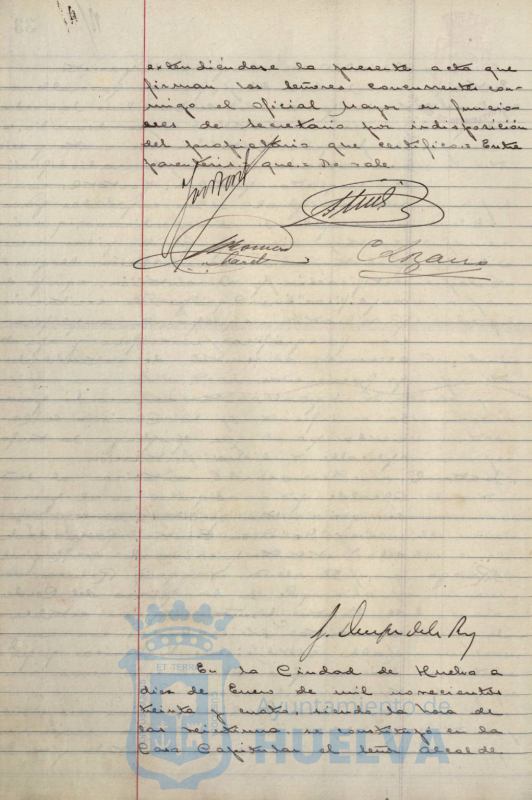 extendiéndose la presente acta que
firman los señores concurrentes con-
migo el oficial Mayor en funcio-
nes de Secretario por indisposición
del propietario que certifico: Entre
parentesis: que = No vale
C Lozano
En la Ciudad de Huelva a
diez de Enero de mil novecientos
treinta y cuatro, siendo la hora de
las se constituyó en la
Casa Capitular el señor Alcalde
ET TERRÆ
Ayuntamiento de
HUELVA